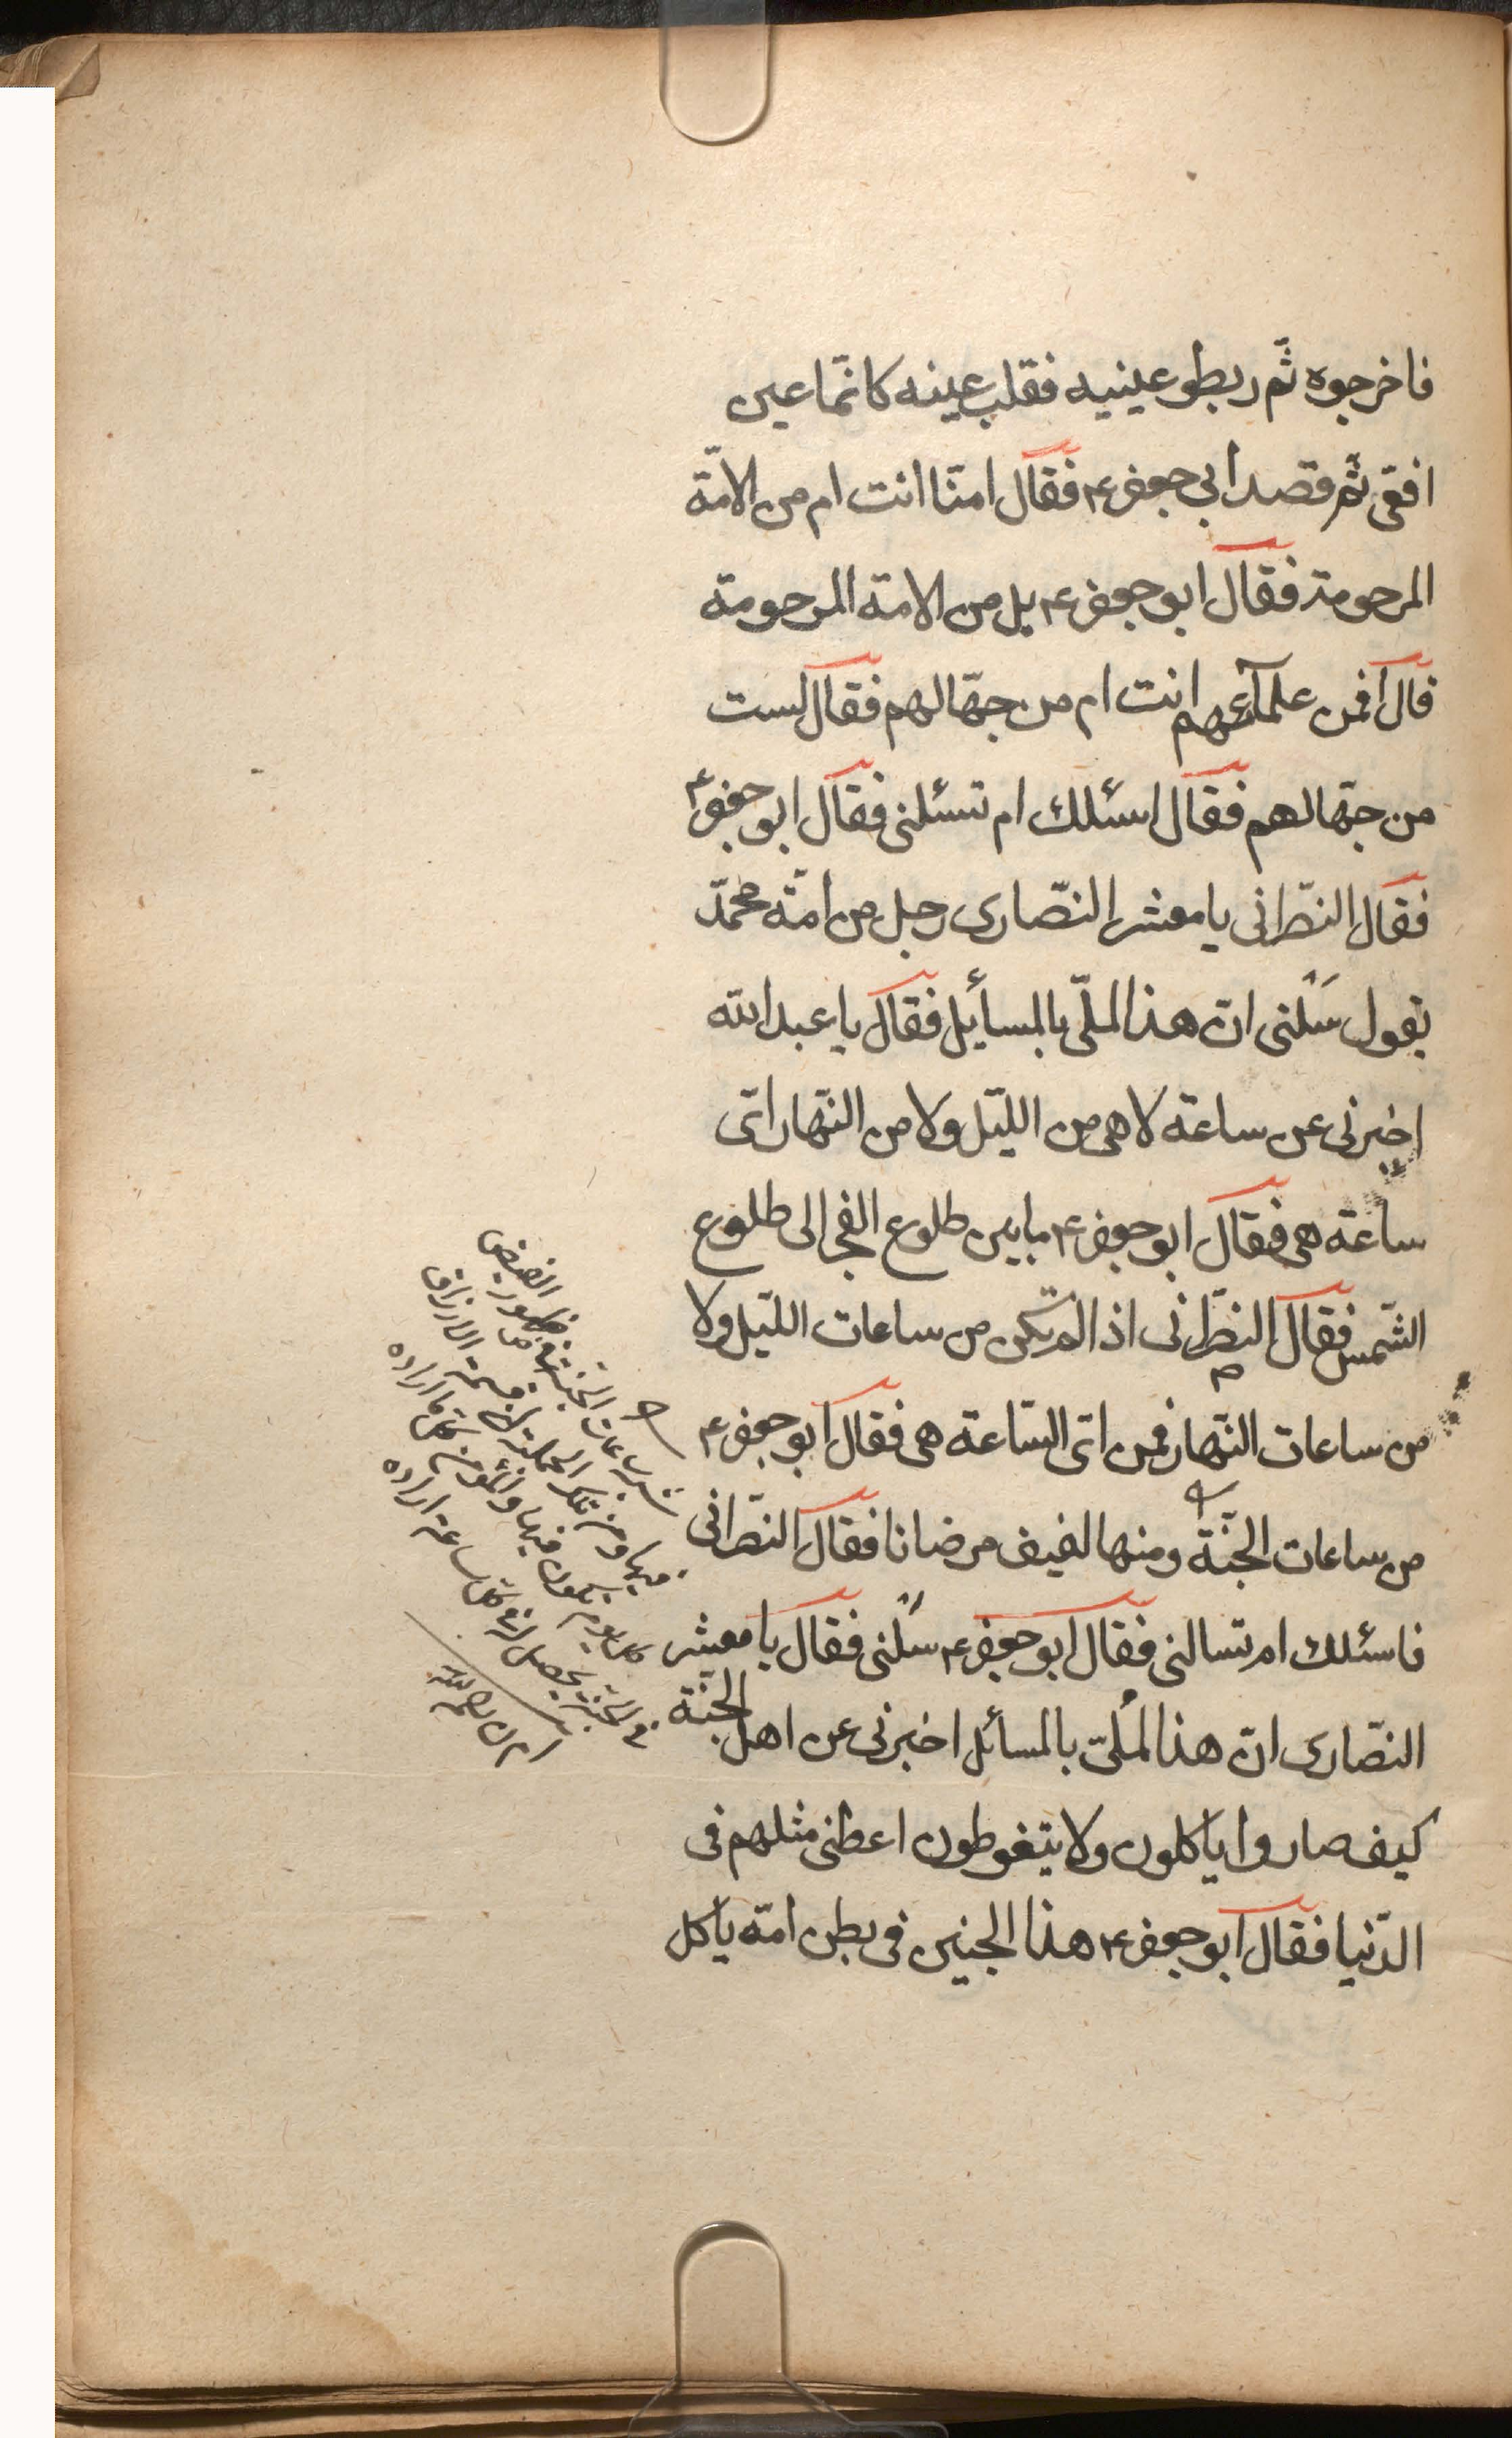 فاخرجوه ثّم ربطو عينيه فقلب عينه كانّما عين
افقى ثّم قصد ابى جعفر ع فقال امنّا انت ام من الامّة
المرحومة فقال ابو جعفر ع بل من الامة المرحومة
قال افمن علمآئهم انت ام من جهّالهم فقال لست
من جهّالهم فقال اسئلك ام تسئلنى فقال ابو جعفر ع
فقال النصّرانى يا معشر النصّارى رجل من امّة محمّد
يقول سَلنى انّ هذا لملّى بالمسأيل فقال يا عبد الله
اخبرنى عن ساعة لا هى من الليّل ولا من النّهار اىّ
ساعة هى فقال ابو جعفر ع ما بين طلوع الفجر الى طلوع
الشّمس فقال النصّرانى اذا لم يكن من ساعات الليّل ولا
من ساعات النّهار فمن اىّ السّاعة هى فقال ابو جعفر ع
من ساعات الجنّة ومنها لفيف مرضانا فقال النصّرانى
فاسئلك ام تسالنى فقال ابو جعفر ع سَلنى فقال يا معشر
النصّارى انّ هذا لمُلىّ بالمسائل اخبرنى عن اهل الجنّة
كيف صاروا ياكلون ولا يتغوطون اعطنى مثلهم فى
الدّنيا فقال ابو جعفر ع هذا الجنين فى بطن امّه ياكل
ساعات الجنّة ظهور الفيض
فيها ومن تلك الجملة قسمة الارزاق